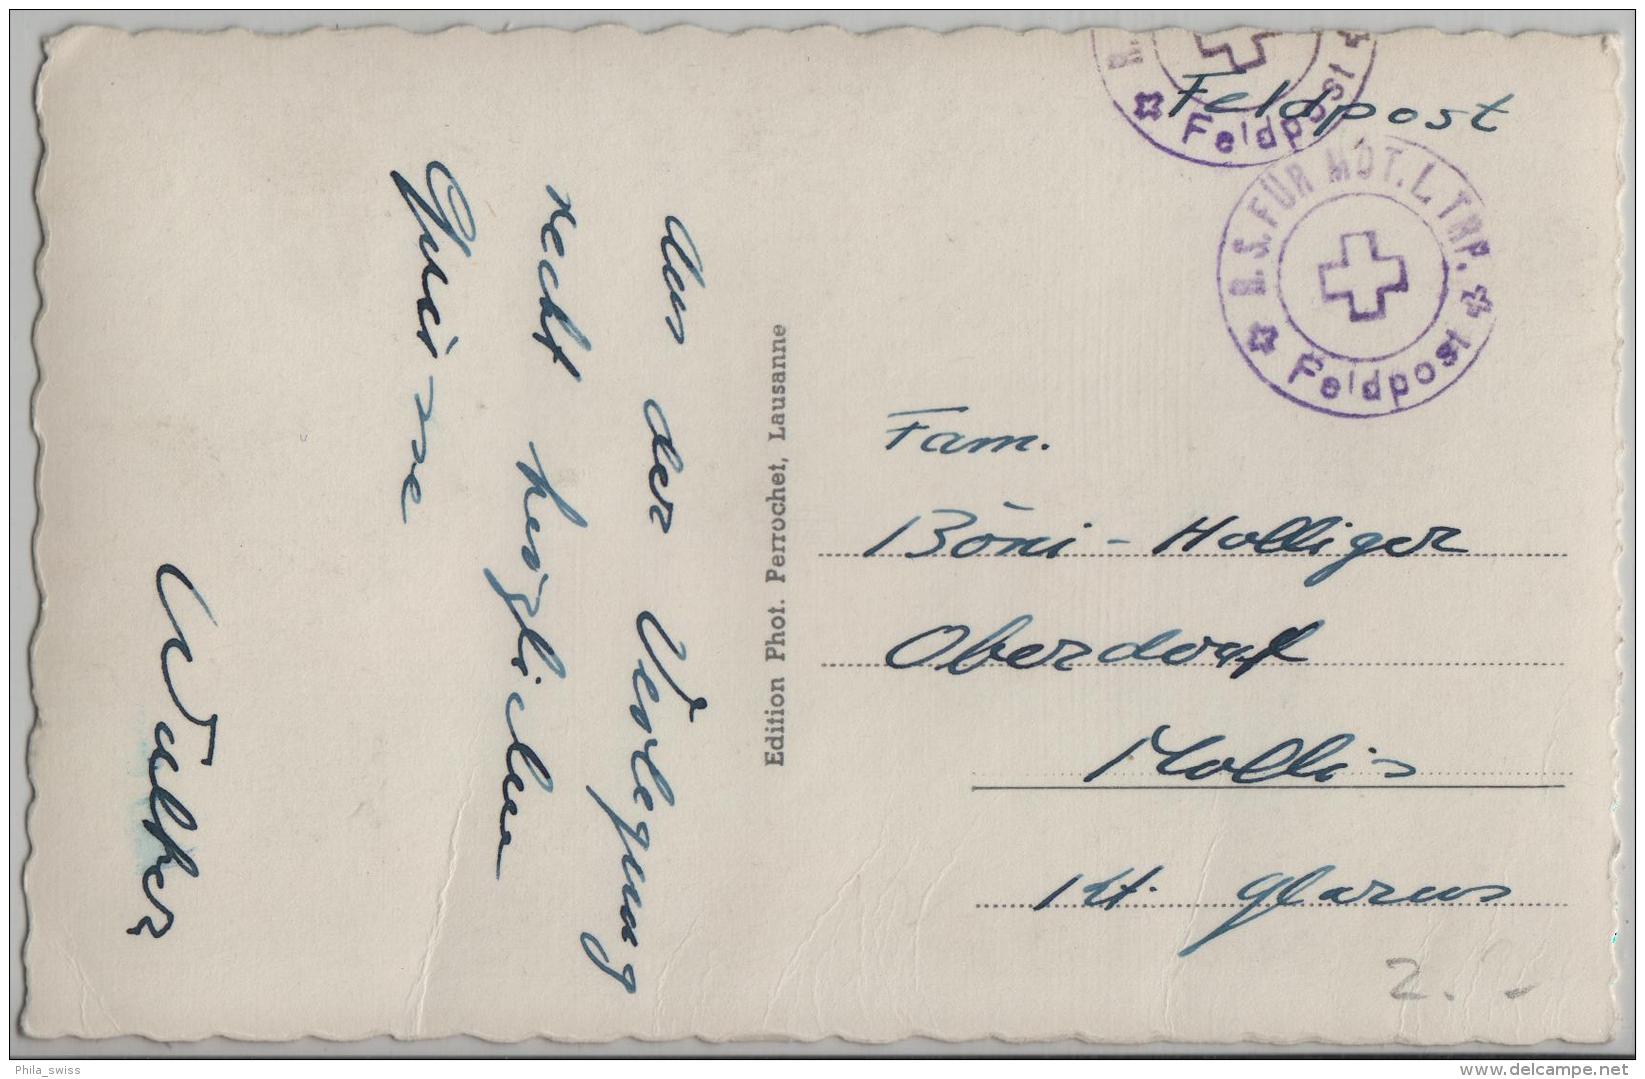 Feldpost
Feldpost
R.S. FÜR MOT. L. TRP.
Feldpost
Fam.
Böni-Holliger
Oberdorf
Mollis
Kt. Glarus
Edition Phot. Perrochet, Lausanne
Aus der Verlegung
recht herzlichen
Grüisse
Walter
Phila_swiss
www.delcampe.net